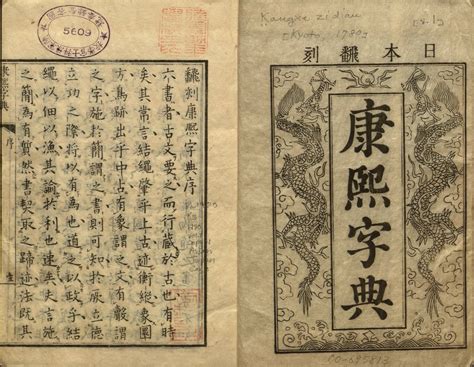 日本飜刻
康熙字典
5609
飜刻康熙字典序
六書者古文要之而行藏於古也有時
矣其常言結繩肇乎上古迹衡縱象圖
方鳥跡出乎中古有像謂之文有
謂
之字施於簡謂之書則可知於厥立德
立功之際將以有為也道之以政乎結
繩以佃以漁其諭於利也速矣史言施
之簡為有
然書契取之歸迹法既其
康熙字典
序